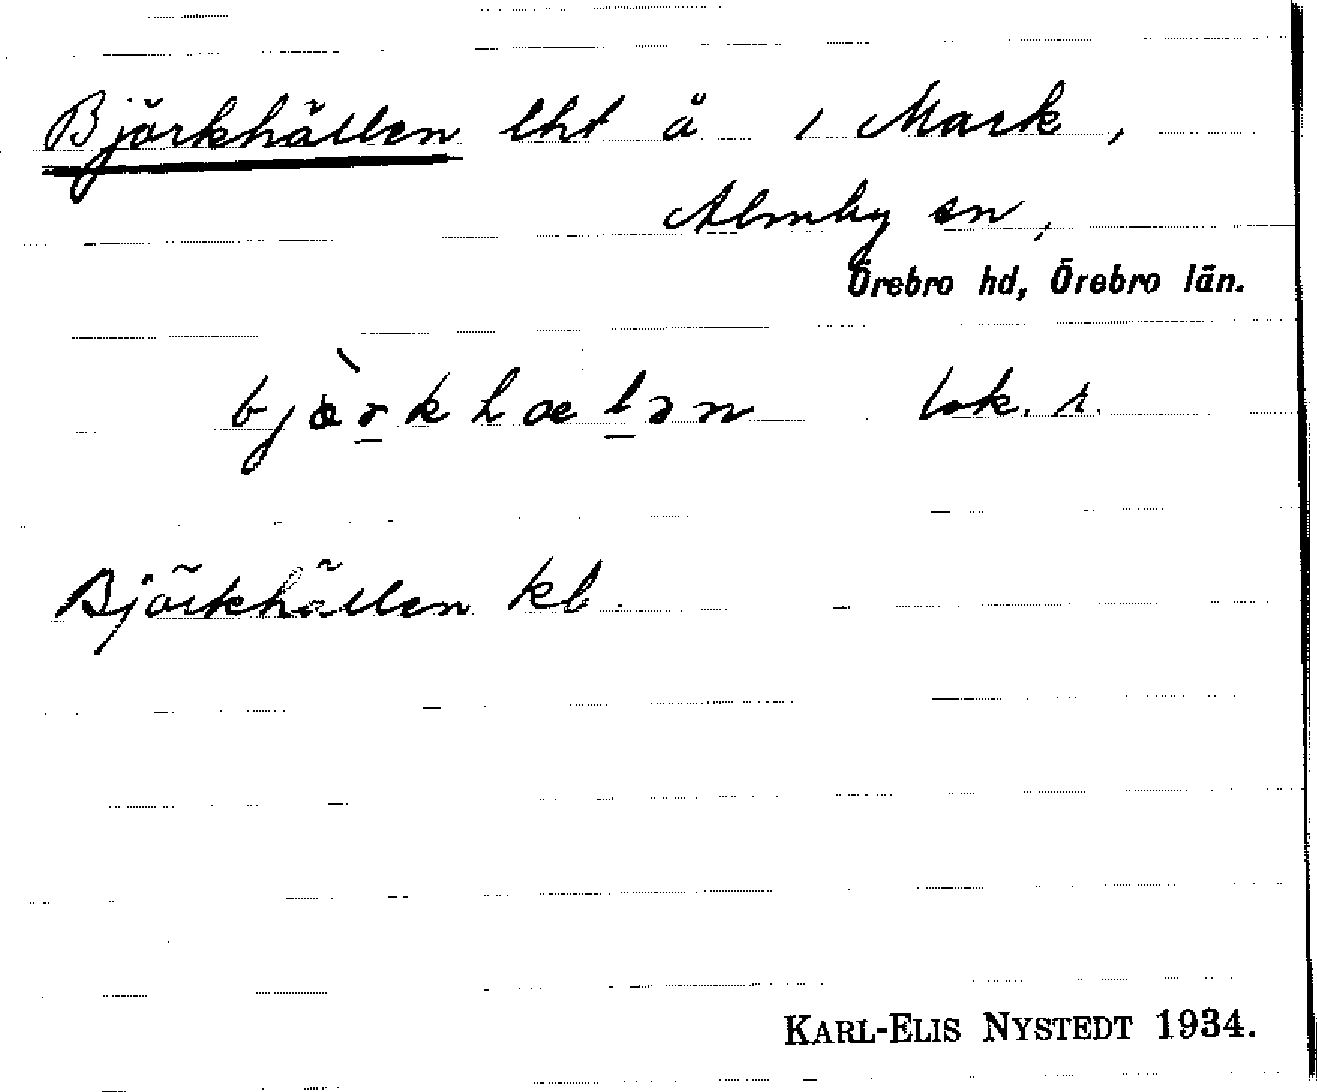 Björkhällen lht å 1 Mark,
Almby sn,
Örebro hd, Örebro län.
bjæ̀r̲khæl̲ən lok. s.
Björkhällen kb.
KARL-ELIS NYSTEDT 1934.